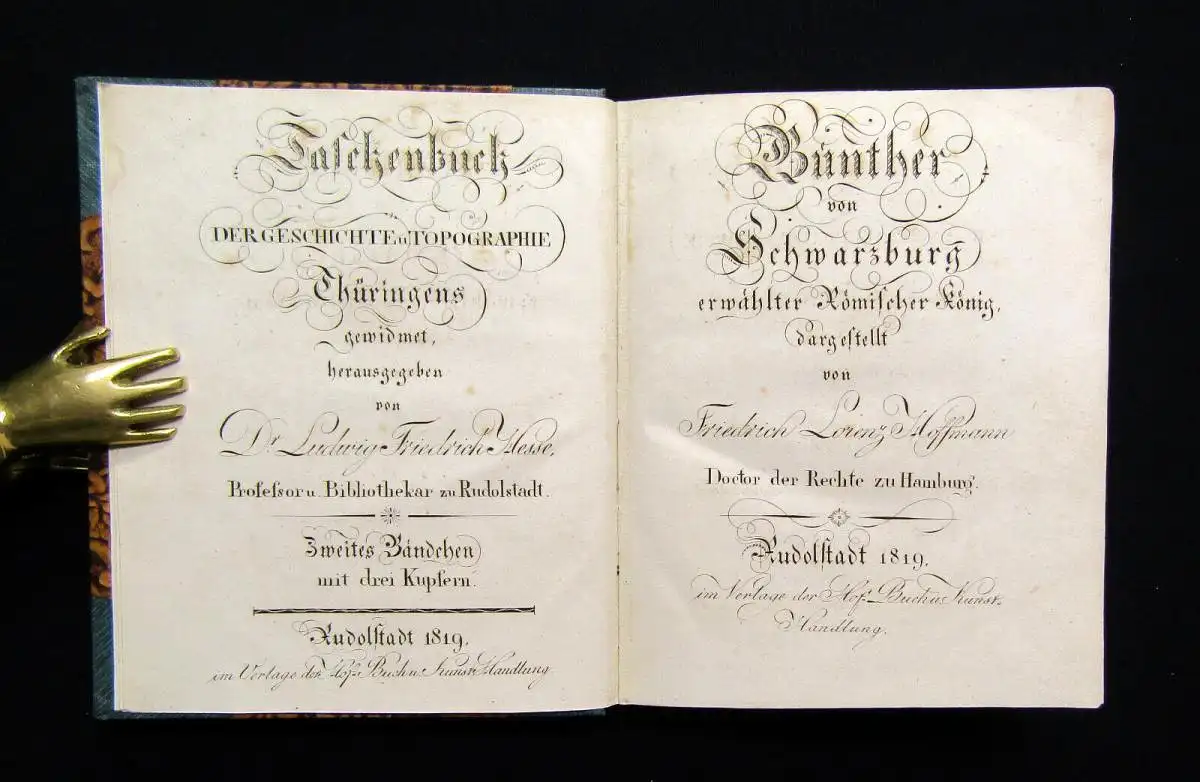 Taschenbuch
DER GESCHICHTE u. TOPOGRAPHIE
Thüringens
gewidmet,
herausgegeben
von
Dr. Ludwig Friedrich Hesse,
Profeſsor u. Bibliothekar zu Rudolstadt.
Zweites Bändchen
mit drei Kupfern.
Rudolſtadt 1819.
im Verlage der Hof- Buch u. Kunst Handlung
Günther
von
Schwarzburg
erwählter Römiſcher König,
dargeſtellt
von
Friedrich Lorenz Hoffmann
Doctor der Rechte zu Hamburg.
Rudolſtadt 1819.
im Verlage der Hof- Buch u. Kunst-
Handlung.